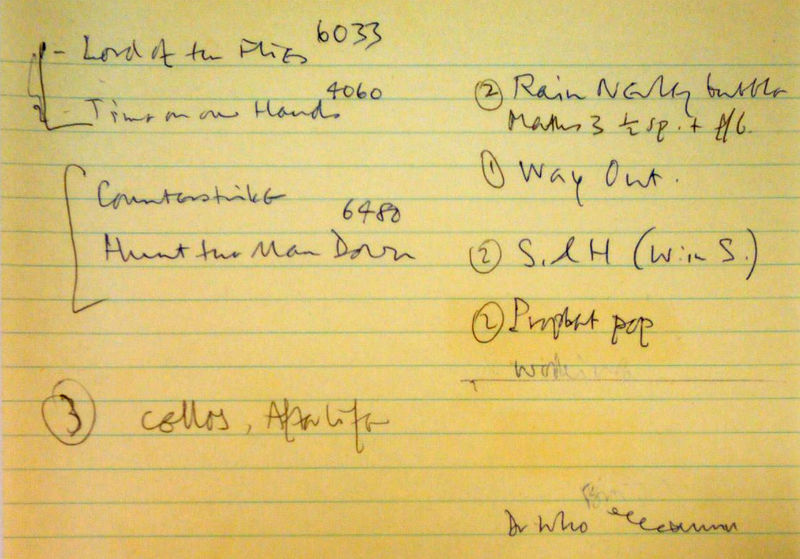 - Lord of the Flies 6033
- Time on our Hands 4060
Counterstrike
Hunt the Man Down 6480
③ Cellos, Afterlife
② Rain Nearly bubble
Maths 3 ½ sp. + f/6.
① Way Out.
② S. & H (Win S.)
② Prophet pop
Dr Who